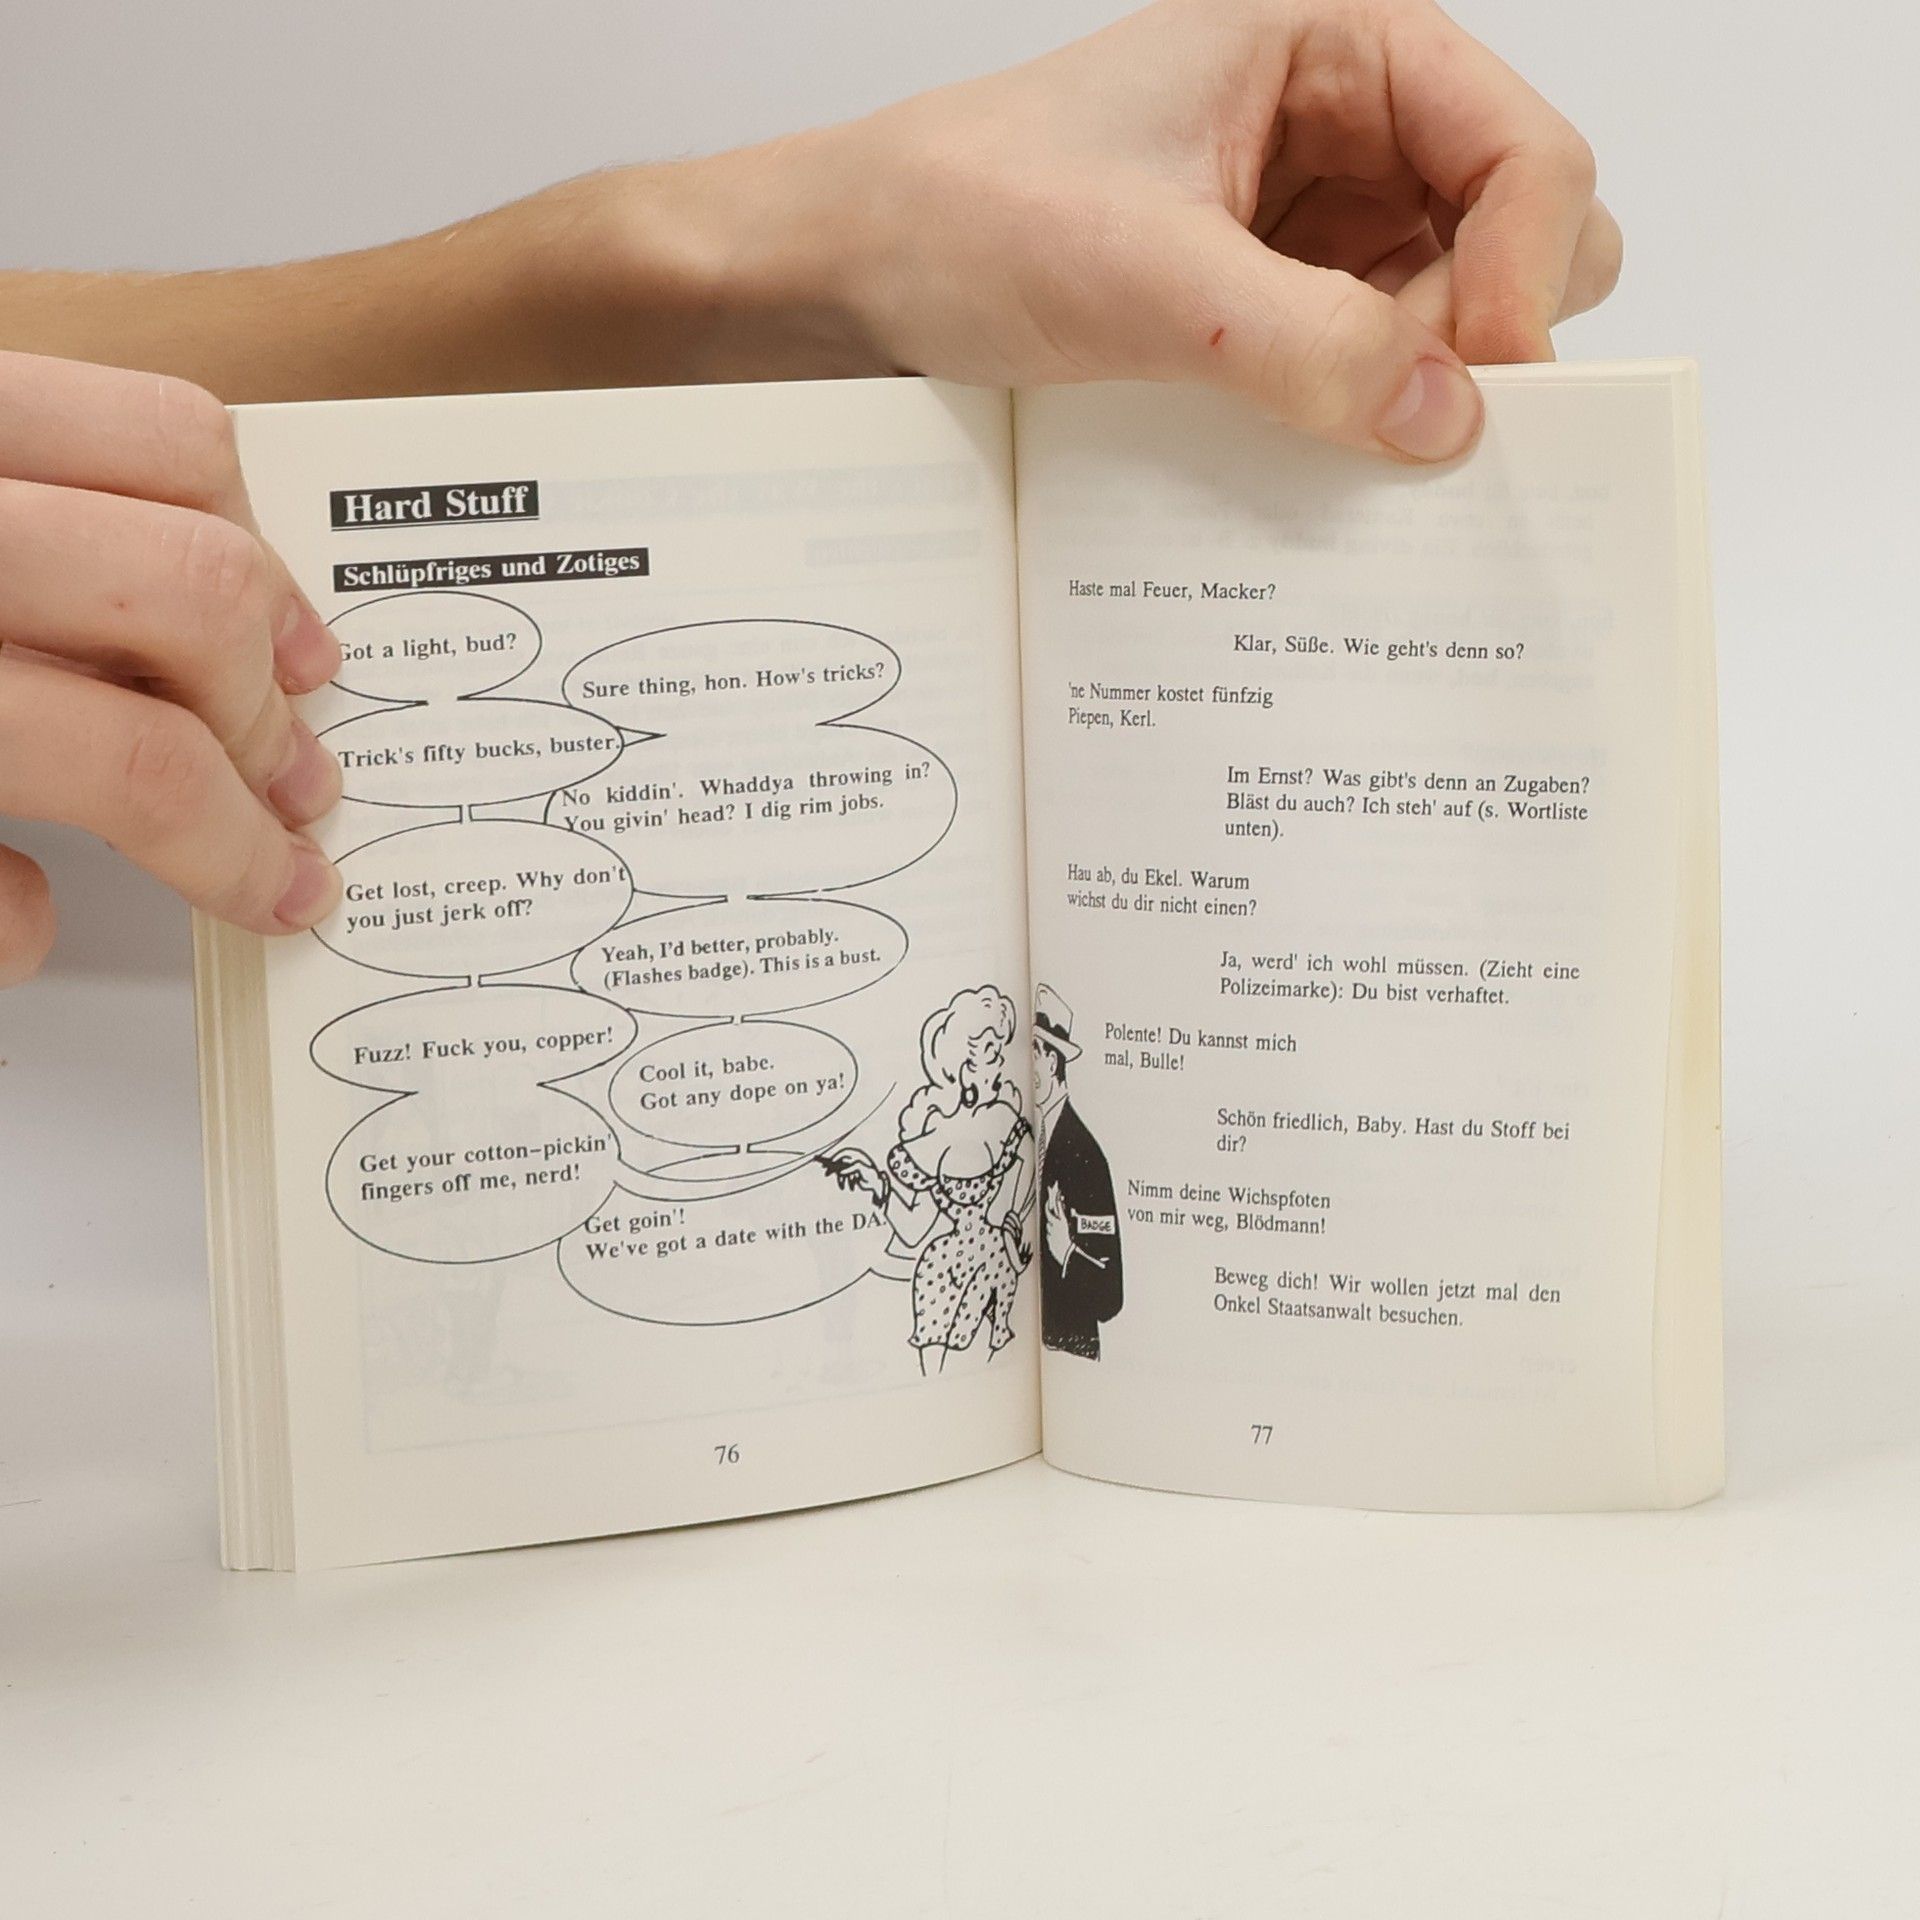 Hard Stuff
Schlüpfriges und Zotiges
Got a light, bud?
Sure thing, hon. How's tricks?
Trick's fifty bucks, buster.
No kiddin'. Whaddya throwing in?
You givin' head? I dig rim jobs.
Get lost, creep. Why don't
you just jerk off?
Yeah, I'd better, probably.
(Flashes badge). This is a bust.
Fuzz! Fuck you, copper!
Cool it, babe.
Got any dope on ya!
Get your cotton-pickin'
fingers off me, nerd!
Get goin'!
We've got a date with the DA.
76
Haste mal Feuer, Macker?
Klar, Süße. Wie geht's denn so?
'ne Nummer kostet fünfzig
Piepen, Kerl.
Im Ernst? Was gibt's denn an Zugaben?
Bläst du auch? Ich steh' auf (s. Wortliste
unten).
Hau ab, du Ekel. Warum
wichst du dir nicht einen?
Ja, werd' ich wohl müssen. (Zieht eine
Polizeimarke): Du bist verhaftet.
Polente! Du kannst mich
mal, Bulle!
Schön friedlich, Baby. Hast du Stoff bei
dir?
Nimm deine Wichspfoten
von mir weg, Blödmann!
BADGE
Beweg dich! Wir wollen jetzt mal den
Onkel Staatsanwalt besuchen.
77